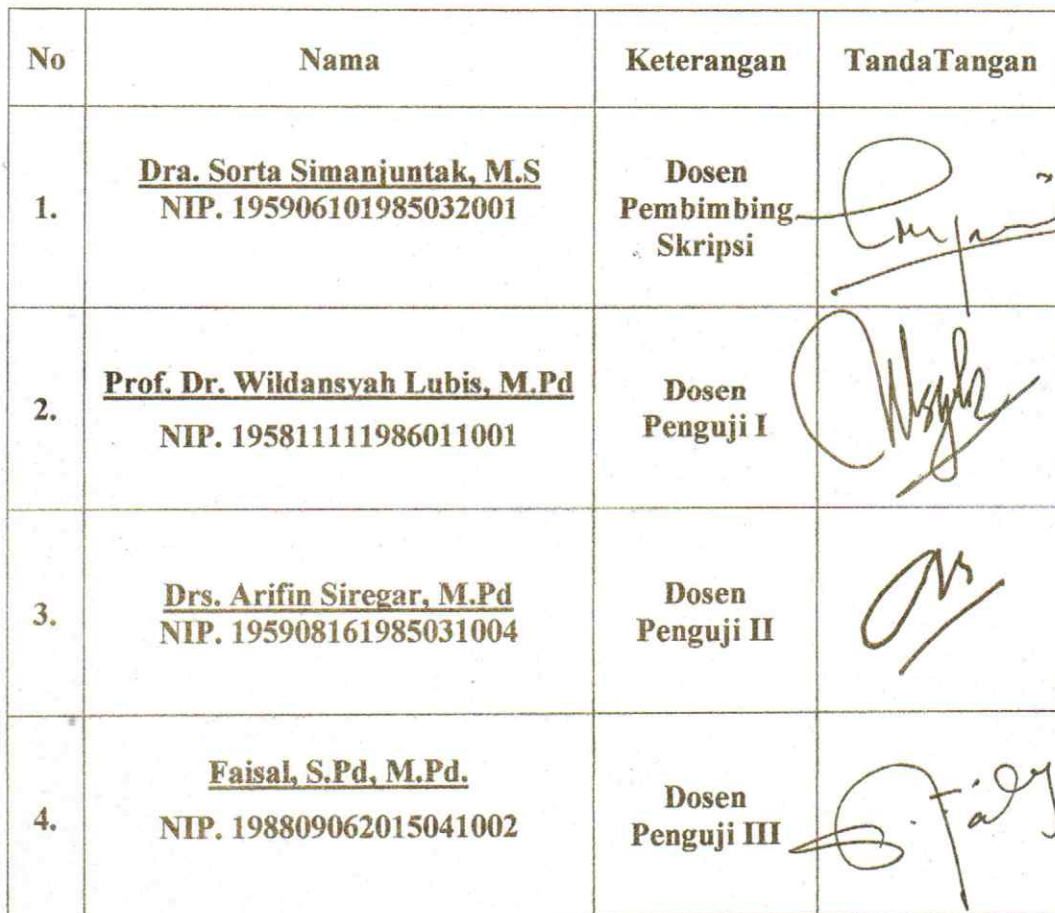 No Nama Keterangan TandaTangan
1.
Dra. Sorta Simanjuntak, M.S
NIP. 195906101985032001
Dosen
Pembimbing
Skripsi
2.
Prof. Dr. Wildansyah Lubis, M.Pd
NIP. 195811111986011001
Dosen
Penguji I
3.
Drs. Arifin Siregar, M.Pd
NIP. 195908161985031004
Dosen
Penguji II
4.
Faisal, S.Pd, M.Pd.
NIP. 198809062015041002
Dosen
Penguji III